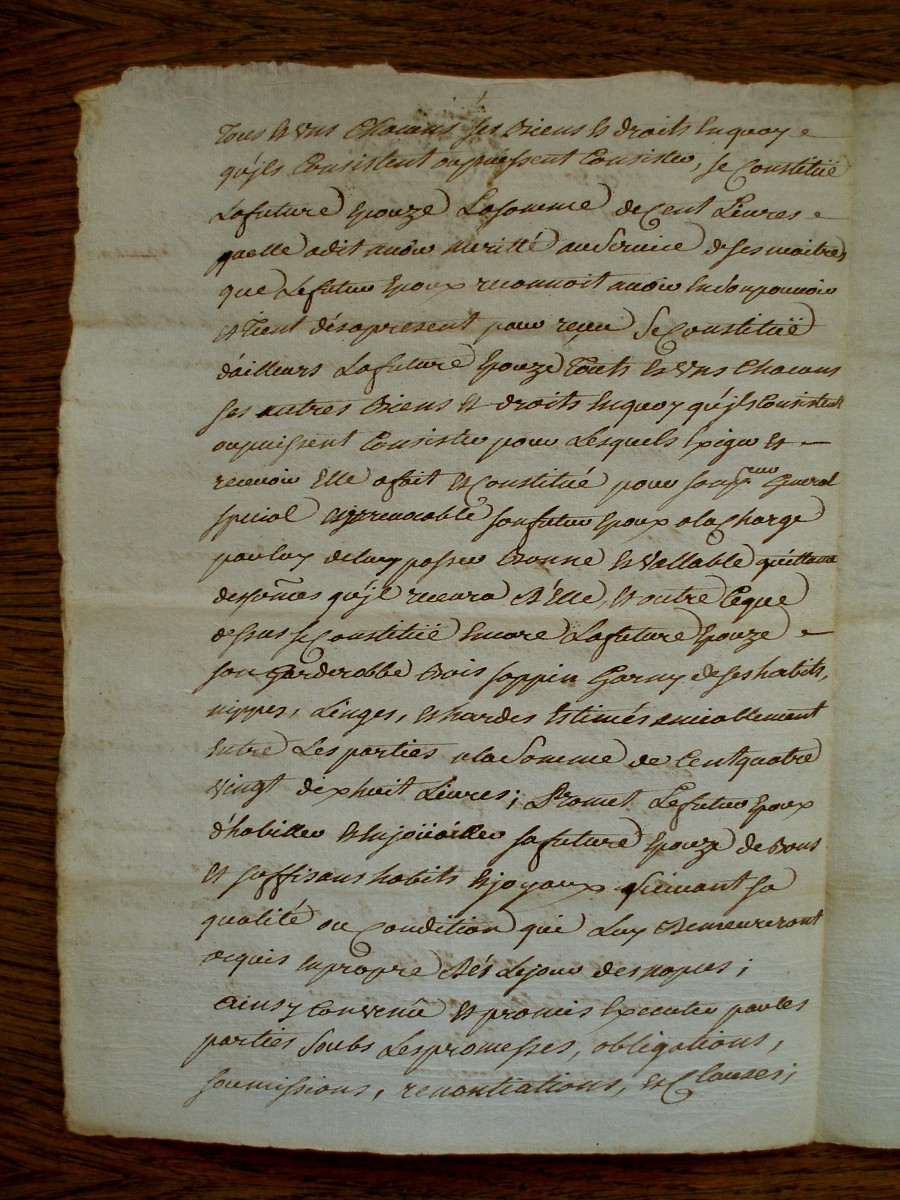 tous et uns chacuns ses biens et droits en quoy
qu'jls Consistent ou puissent Consister, se Constitüe
La future Epouze La somme de Cent Livres
quelle a dit avoir meritté au Service de ses maitres
que Le futur Epoux reconnoit avoir en son pouvoir
et tient dés apresent pour reçu Se Constitüe
d'ailleurs La future Epouze Touts et uns Chacuns
ses autres Biens et droits en quoy qu'jls Consistent
ou puissent Consister pour Lesquels Exiger et
recevoir Elle a fait et Constitué pour son preur General
special et jrrevocable son futur Epoux a la Charge
par luy de luy passer Bonne et Vallable quittance
des soes qu'jl recevra d'Elle, et outre Ce que
dessus se Constitüe Encore La future Epouze
son Garderobbe Bois sappin Garny de ses habits,
nippes, Linges, et hardes Estimés amicablement
Entre Les parties a la Somme de Cent quatre
vingt dex huit Livres; Promet Le futur Epoux
d'habiller et Enjoüailler sa future Epouze de Bons
et suffisans habits et joyaux suivant sa
qualité ou Condition qui Luy Demeureront
acquis En propre dés Le jour des nopces;
Ainsy convenû et promis Executer par les
parties Soubs Les promesses, obligations,
soumissions, renontiations, et Clauses;